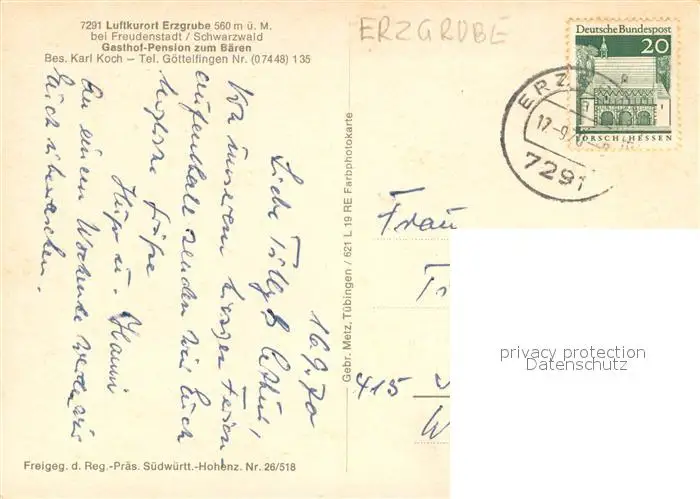 7291 Luftkurort Erzgrube 560 m ü. M.
bei Freudenstadt / Schwarzwald
Gasthof-Pension zum Bären
Bes. Karl Koch – Tel. Göttelfingen Nr. (07448) 135
ERZGRUBE
Deutsche Bundespost
20
LORSCH/HESSEN
ERZ
17.-9.
7291
16.9.70
Liebe
Von unserem hiesigen Ferien-
aufenthalt senden wir Euch
herzliche Grüße
Hugo u. Hanni
An einem Wochenende werden wir
Euch überraschen.
Gebr. Metz, Tübingen / 621 L 19 RE Farbphotokarte
Frau
415
privacy protection
Datenschutz
Freigeg. d. Reg.-Präs. Südwürtt.-Hohenz. Nr. 26/518